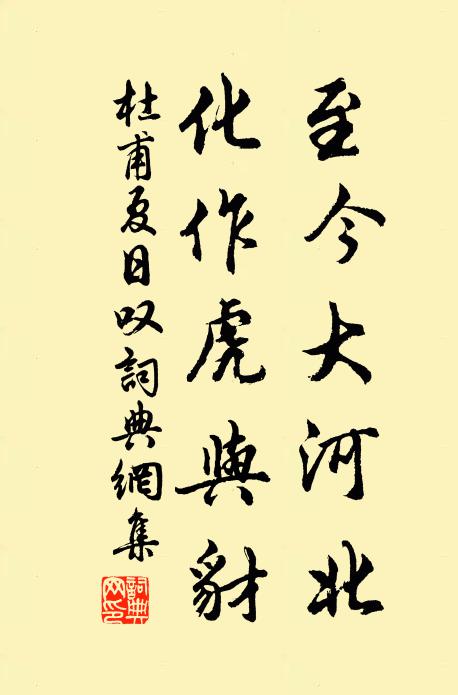 至今大河北
化作虎與豺
杜甫夏日叹詞典網集
詞典網印